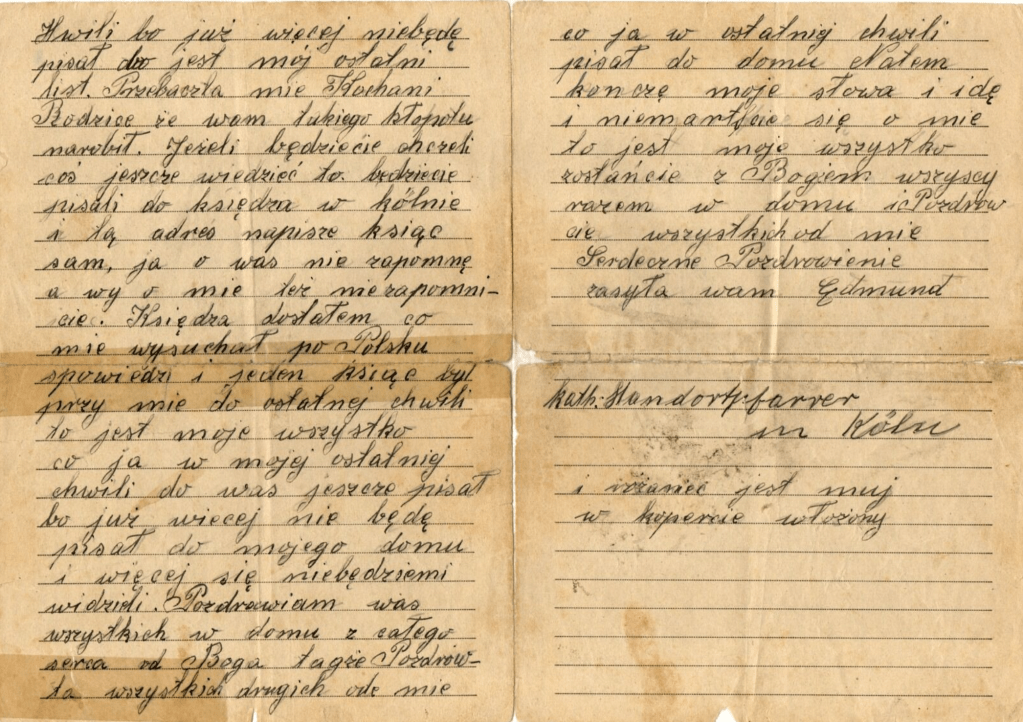 Hwili bo już więcej niebędę
pisał bo jest mój ostatni
list. Przebaczta mie Kochani
Rodzice że wam takiego kłopotu
narobił. Jeżeli będziecie chcreli
coś jeszcze wiedzieć to będziecie
pisali do księdza w kölnie
i tą adres napisze ksiąc
sam, ja o was nie zapomnę
a wy o mie też niezapomni-
cie. Księdza dostałem co
mie wysuchał po Polsku
spowiedzi i jeden ksiąc był
przy mie do ostatnej chwili
to jest moje wszystko
co ja w mojej ostatniej
chwili do was jeszcze pisał
bo już wiecej nie będę
pisał do mojego domu
i więcej się niebędziemi
widzieli. Pozdrawiam was
wszystkich w domu z całego
serca od Boga tagże Pozdrów-
ta wszystkich drugich odę mie
co ja w ostatniej chwili
pisał do domu Natem
kończę moje słowa i idę
i niemartfcie się o mie
to jest moje wszystko
zostańcie z Bogiem wszyscy
razem w domu i Pozdrow
cie wszystkich od mie
Serdeczne Pozdrowienie
zasyła wam Edmund
kath. Standortpfarrer
in Köln
i rożaniec jest muj
w kopercie włożony